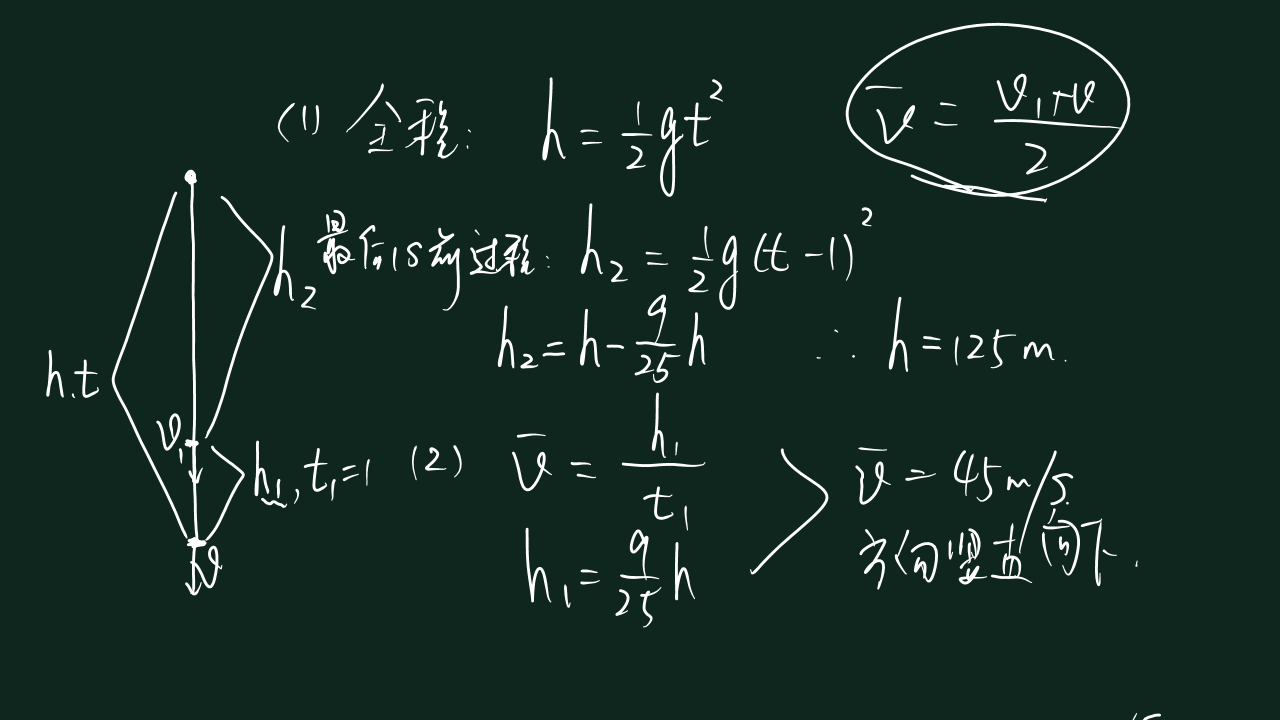 (1) 全程: h = 1/2 gt²
v̄ = (v₁+v)/2
最后1s前过程: h₂ = 1/2 g(t-1)²
h₂
h₂ = h - 9/25 h ∴ h = 125m.
h.t
v₁
h₁, t₁=1
(2) v̄ = h₁/t₁
h₁ = 9/25 h
v̄ = 45m/s.
方向竖直向下.
v